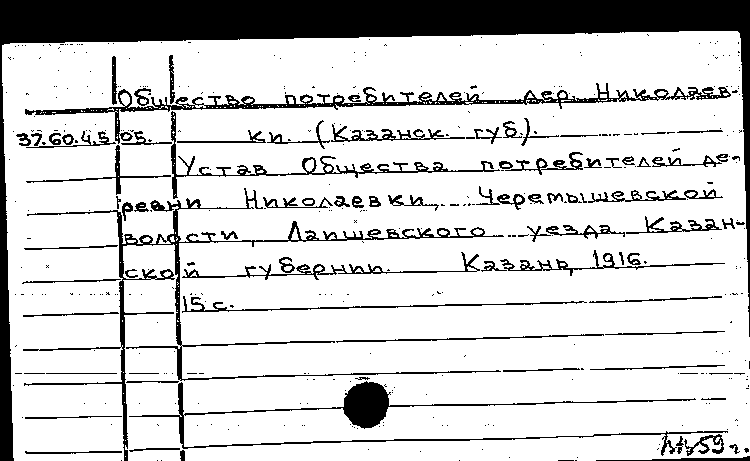 Общество потребителей дер. Николаев-
37.60.4.5.05. ки. (Казанск. губ.).
Устав Общества потребителей де-
ревни Николаевки, Черемышевской
волости, Лаишевского уезда, Казан-
ской губернии. Казань, 1916.
15 с.
59 г.